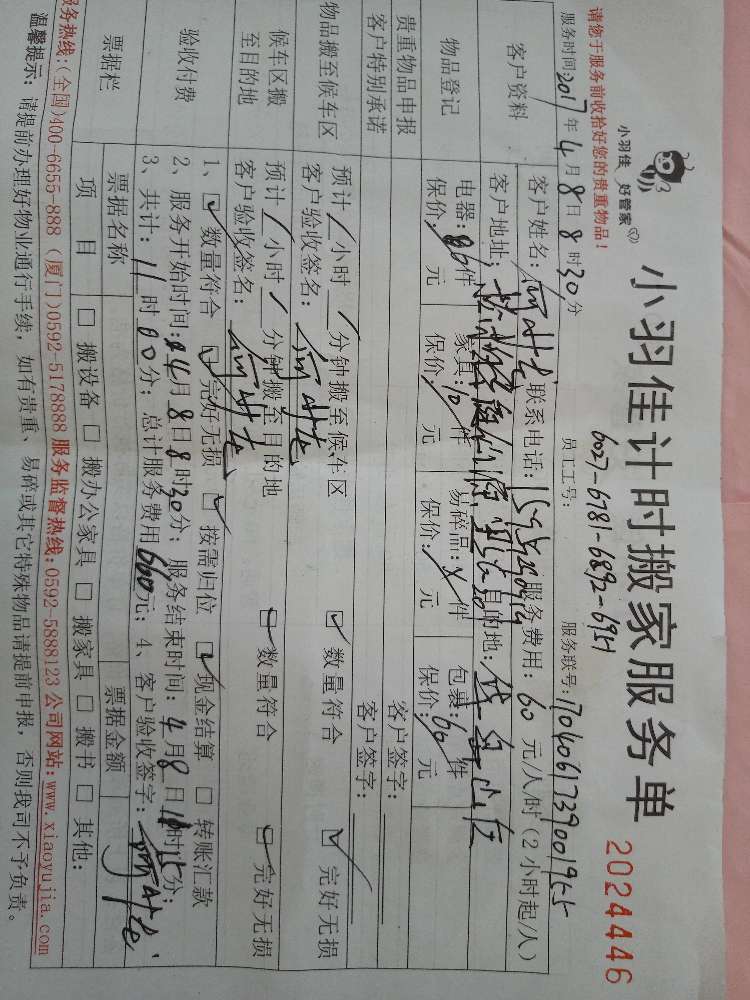 小羽佳 好管家
小羽佳计时搬家服务单
2024446
请您于服务前收拾好您的贵重物品！
6027-6781-6892-6951
服务时间：2017年4月8日8时30分 员工工号： 服务联号：
客户资料 客户姓名： 联系电话： 服务费用：60元/人/时（2小时起/人）
客户地址： 目的地：
物品登记 电器： 件 家具：10件 易碎品： 件 包裹：60件
保价： 元 保价：/元 保价：/元 保价： 元
贵重物品申报 客户签字：
客户特别承诺 客户签字：
物品搬至候车区 预计/小时/分钟搬至候车区 ☑数量符合 ☑完好无损
客户验收签名：
候车区搬至目的地 预计/小时/分钟搬至目的地 ☑数量符合 ☑完好无损
客户验收签名：
验收付费 1、☑数量符合 ☑完好无损 ☑按需归位 ☑现金结算 □转账汇款
2、服务开始时间：4月8日8时30分；服务结束时间：4月8日 时 分；
3、共计：11时00分；总计服务费用660元；4、客户验收签字：
票据栏 票据名称 票据金额
项目 □搬设备 □搬办公家具 □搬家具 □搬书 □其他：
服务热线：(全国)400-6655-888 (厦门)0592-5178888 服务监督热线：0592-5888123 公司网站：www.xiaoyujia.com
温馨提示：请提前办理好物业通行手续，如有贵重、易碎或其它特殊物品请提前申报，否则我司不予负责。